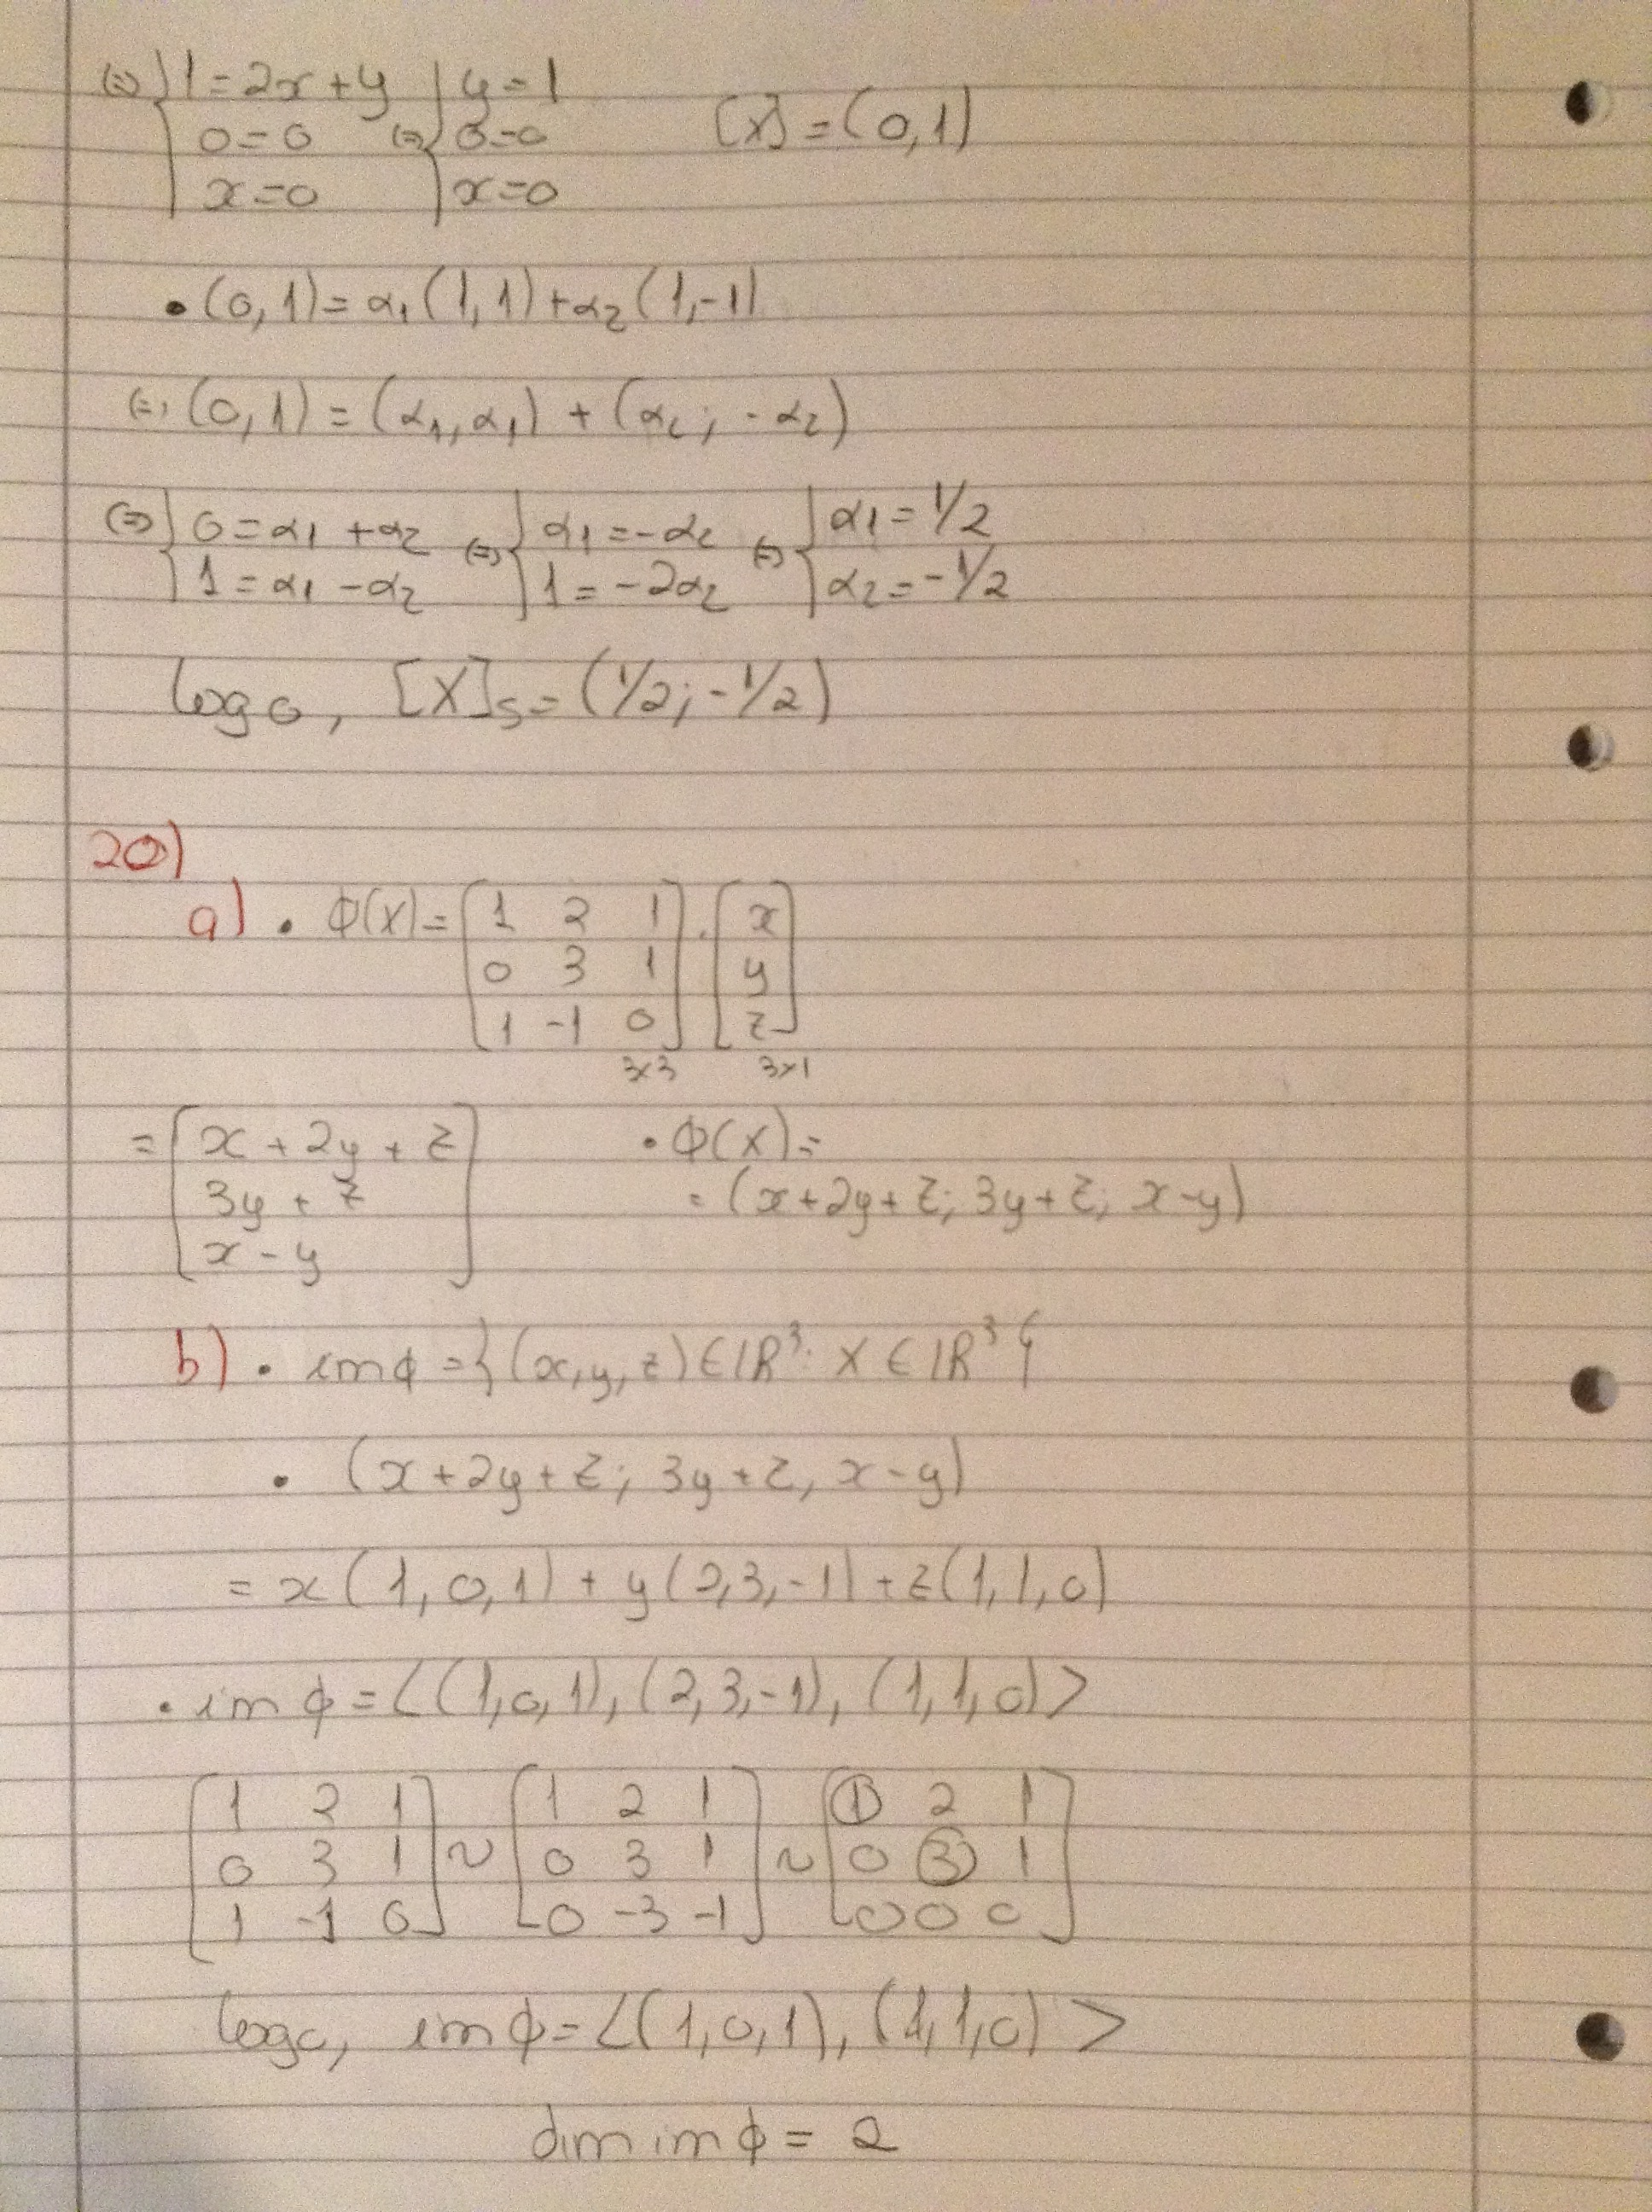 (=) { 1=2x+y (=) { y=1 [X]=(0,1)
0=0 0=0
x=0 x=0
• (0,1)=α1(1,1)+α2(1,-1)
(=) (0,1)=(α1,α1)+(α2;-α2)
(=) { 0=α1+α2 (=) { α1=-α2 (=) { α1=1/2
1=α1-α2 1=-2α2 α2=-1/2
logo, [X]s=(1/2;-1/2)
20)
a) • ϕ(X)= [ 1 2 1 ] . [ x ]
0 3 1 y
1 -1 0 z
3x3 3x1
= [ x+2y+z ] • ϕ(X)=
3y+z = (x+2y+z; 3y+z; x-y)
x-y
b) • im ϕ = { (x,y,z) ∈ IR³: X ∈ IR³ }
• (x+2y+z; 3y+z, x-y)
= x(1,0,1)+y(2,3,-1)+z(1,1,0)
• im ϕ = <(1,0,1), (2,3,-1), (1,1,0)>
[ 1 2 1 ] ~ [ 1 2 1 ] ~ [ 1 2 1 ]
0 3 1 0 3 1 0 3 1
1 -1 0 0 -3 -1 0 0 0
logo, im ϕ = <(1,0,1), (1,1,0)>
dim im ϕ = 2